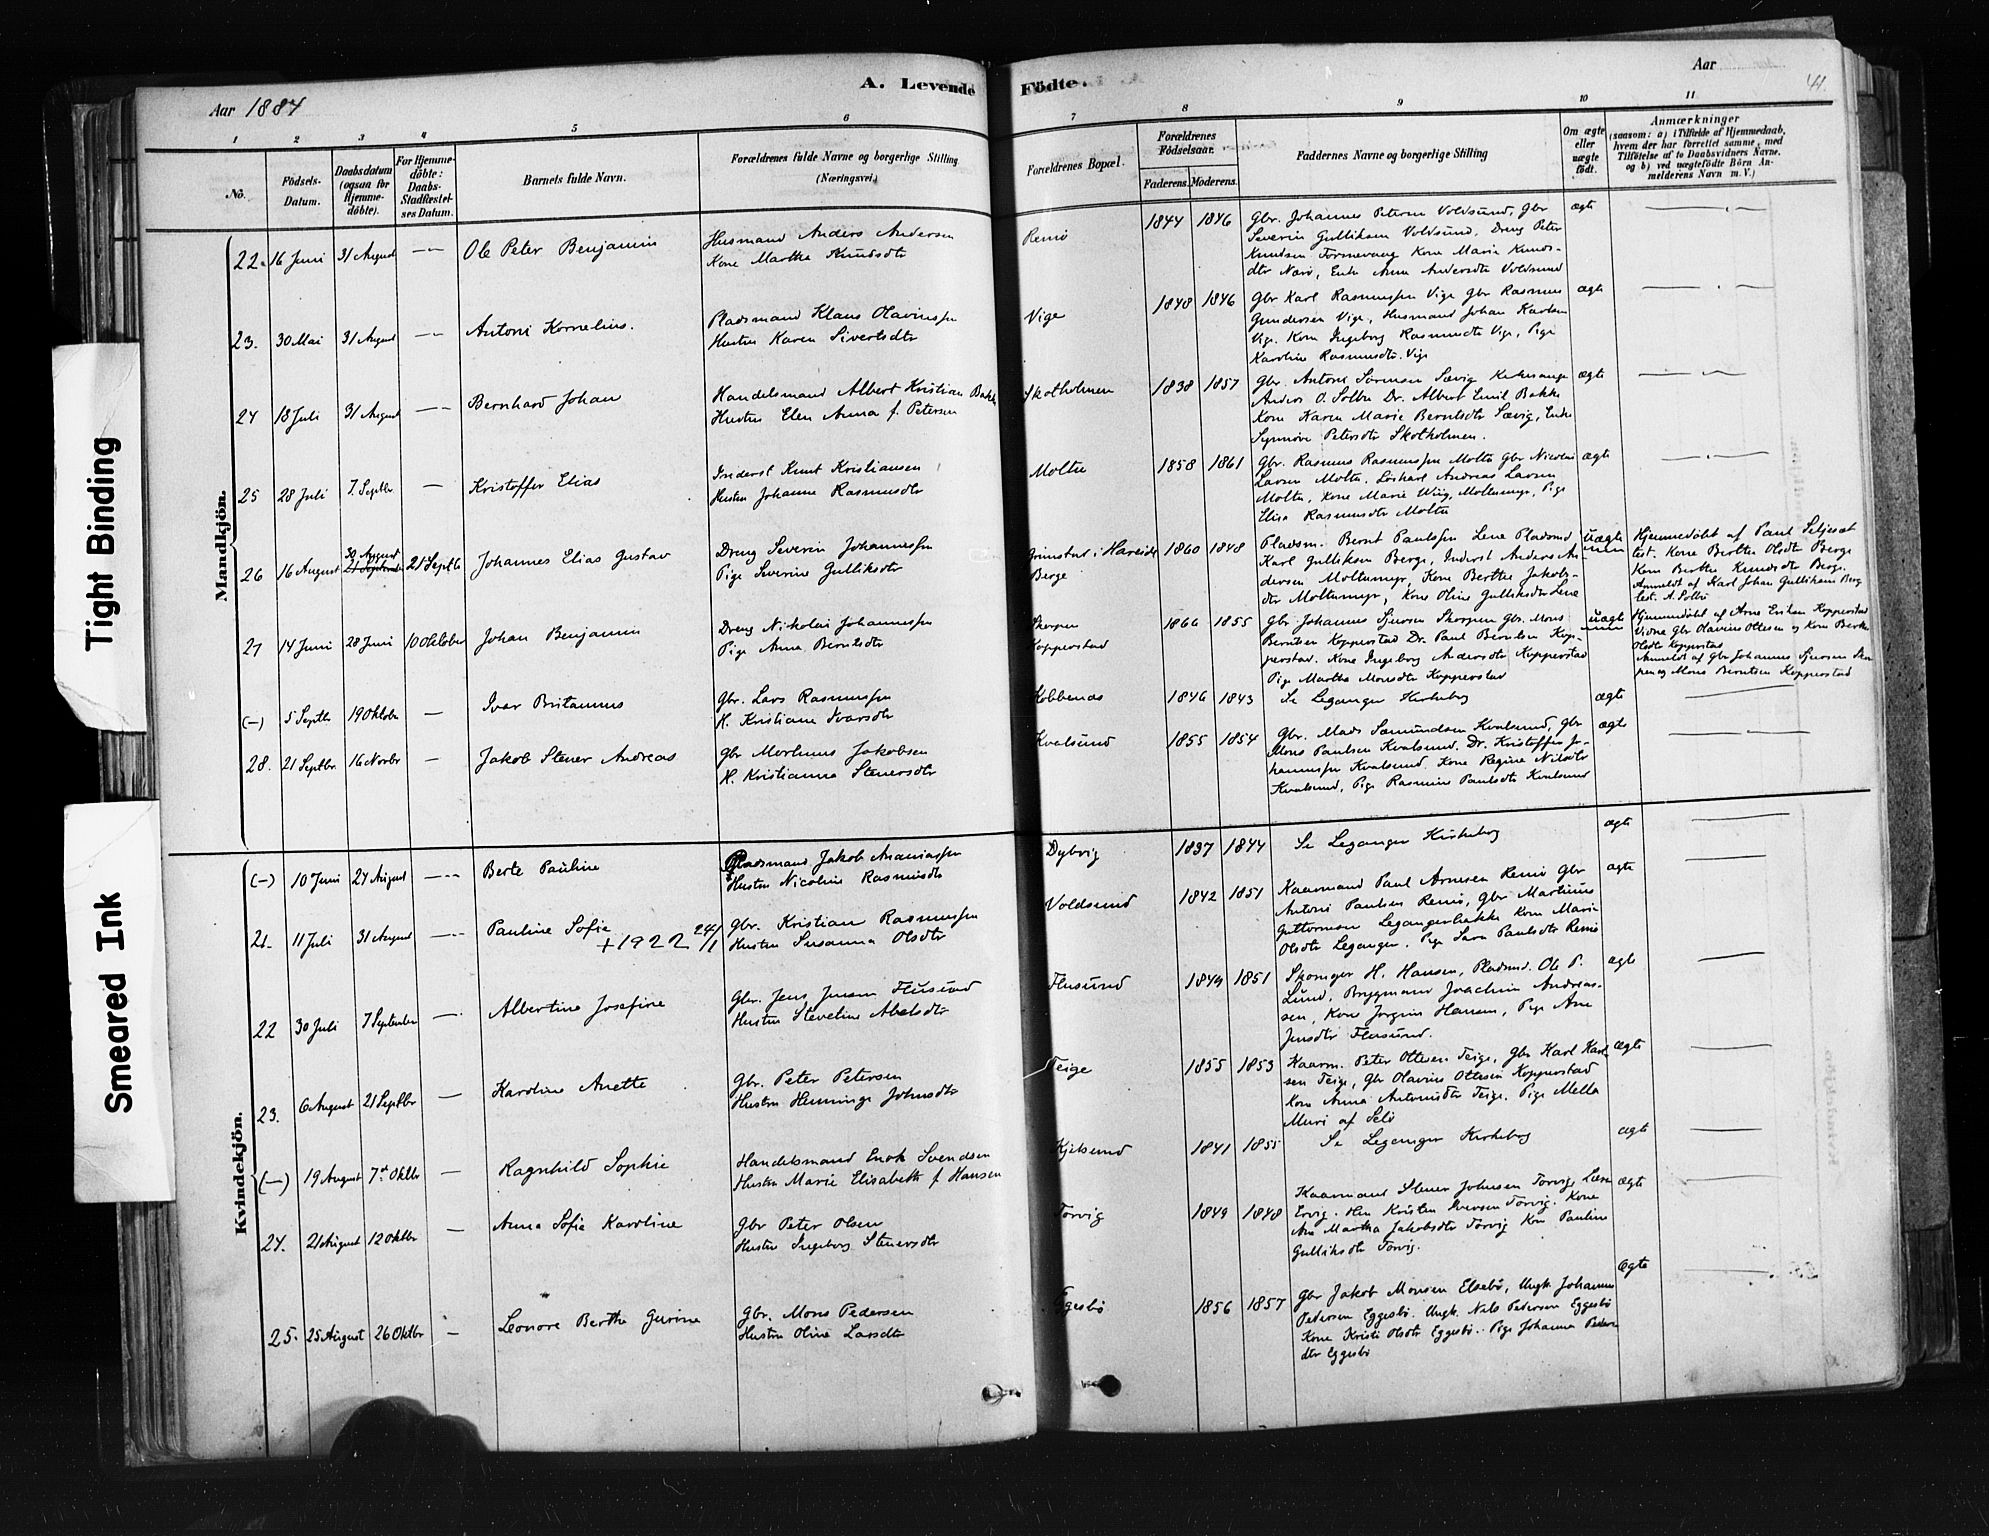 A. Levende Födte.
Aar 1884
Aar
41.
1 2 3 4 5 6 7 8 9 10 11
No.
Födsels-Datum.
Daabsdatum (ogsaa for Hjemme-döbte).
For Hjemme-döbte: Daabs-Stadfæstel-ses Datum.
Barnets fulde Navn.
Forældrenes fulde Navne og borgerlige Stilling (Næringsvei.)
Forældrenes Bopæl.
Forældrenes Födselsaar.
Faderens. Moderens.
Faddernes Navne og borgerlige Stilling
Om ægte eller uægte födt.
Anmærkninger
(saasom: a) i Tilfælde af Hjemmedaab,
hvem der har forrettet samme, med
Tilföielse af to Daabsvidners Navne.
og b) ved uægtefödte Börn An-
melderens Navn m. V.)
Mandkjön.
22. 16 Juni 31 August Ole Peter Benjamin
Husmand Anders Andersen
Kone Martha Knudsdtr
Remö 1844 1846
Gbr. Johannes Petersen Voldsund, Gbr
Severin Gulliksen Voldsund, Dreng Peter
Knudsen Kone Marie Knuds-
dtr Nærö, Enke Anna Andersdtr Voldsund
ægte
23. 30 Mai 31 August Antoni Kornelius.
Pladsmand Klaus Olavissen
Hustru Karen Sivertsdtr
Vige 1848 1846
Gbr Karl Rasmussen Vige Gbr Rasmus
Gundersen Vige, Husmand Johan Karlsen
Vige. Kone Ingeborg Rasmusdtr Vige, Pige
Karoline Rasmusdtr. Vige
ægte
24 18 Juli 31 August Bernhard Johan
Handelsmand Albert Kristian Bakke
Hustru Elen Anna f. Petersen
Skotholmen 1838 1857
Gbr. Antone Sörensen Sævig
Anders O. Solbu Dr. Albert Emil Bakke
Kone Karen Marie Berntsdtr Sævig, Enke
Synnöve Petersdtr Skotholmen.
ægte
25 28 Juli 7. Septbr Kristoffer Elias
Inderst Knut Kristiansen
Hustru Johanne Rasmusdtr
Moltu 1858 1861
Gbr. Rasmus Rasmussen Moltu Gbr Nicolai
Larsen Moltu. Löskarl Andreas Larsen
Moltu, Kone Marie Wiig, Moltumyr, Pige
Elisa Rasmusdtr Moltu
ægte
26 16 August 30 August 21 Septbr Johannes Elias Gustav
Dreng Severin Johannessen
Pige Severine Gulliksdtr
Grimstad i Hareid
Berge
1860 1848
Pladsm. Bernt Paulsen Lene Pladsmd
Karl Gulliksen Berge, Inderst Anders An-
dersen Moltumyr, Kone Berthe Jakobs-
dtr Moltumyr, Kone Oline Gulliksdtr Lene
uægte
Hjemmedöbt af Paul Seljeset
test. Kone Berthe Olsdtr Berge
Kone Berthe Knudsdtr Berge.
Anmeldt af Karl Johan Gulliksen Berg
test. A. Solbu
27 14 Juni 28 Juni 10 Oktober Johan Benjamin
Dreng Nikolai Johannessen
Pige Anna Berntsdtr
Skorpen
Kopperstad
1866 1855
Gbr Johannes Sjursen Skorpen Gbr. Mons
Berntsen Kopperstad Dr. Paul Berntsen Kop-
perstad. Kone Ingeborg Andersdtr Kopperstad
Pige Martha Monsdtr Kopperstad
uægte
Hjemmedöbt af Arne Eriksen Kopperstad
Vidne Gbr Olavius Ottesen og Kone Berthe
Olsdtr Kopperstad
Anmeldt af Gbr Johannes Sjursen Skor-
pen og Mons Berntsen Kopperstad
(-) 5 Septbr 19 Oktober Ivar Britanus
Gbr. Lars Rasmussen
H. Kristiane Ivarsdtr
Kobbenes 1846 1843
Se Leganger Kirkebog
ægte
28. 21 Septbr. 16 Novbr Jakob Stener Andreas
Gbr Martinus Jakobsen
H. Kristianna Stenersdtr
Kvalsund 1855 1854
Gbr. Mads Samundsen Kvalsund, Gbr
Mons Paulsen Kvalsund. Dr. Kristoffer Jo-
hannessen Kvalsund. Kone Regine Nilsdtr
Kvalsund, Pige Rasmine Paulsdtr Kvalsund
ægte
Kvindekjön.
(-) 10 Juni 27 August Berte Pauline
Pladsmand Jakob Ananiassen
Hustru Nicoline Rasmusdtr
Dybvig 1837 1844
Se Leganger Kirkebog
ægte
21. 11 Juli 31 August Pauline Sofie
+ 1922 24/1
Gbr. Kristian Rasmussen
Hustru Susanna Olsdtr
Voldsund 1842 1851
Kaarmand Paul Arnesen Remö Gbr
Antoni Paulsen Remö, Gbr Martinus
Guttormsen Legangerbakke Kone Marie
Olsdtr Leganger. Pige Sara Paulsdtr Remö
ægte
22 30 Juli 7 September Albertine Josefine
Gbr. Jens Jensen Flusund
Hustru Steveline Abelsdtr
Flusund 1849 1851
Skomager H. Hansen, Pladsmd. Ole P.
Lund, Bryggmand Joachim Andreas-
sen, Kone Jörgine Hansen, Pige Ane
Jensdtr Flusund.
ægte
23. 6 August 21 Septbr Karoline Anette
Gbr. Peter Petersen
Hustru Henninge Johnsdtr
Teige 1855 1853
Kaarm. Peter Ottesen Teige, Gbr Karl Karl-
sen Teige, Gbr Olavius Ottesen Kopperstad
Kone Anna Antonisdtr Teige. Pige Mella
Muri af Selö
ægte
(-) 19 August 7de Oktbr Ragnhild Sophie
Handelsmand Enok Svendsen
Hustru Marie Elisabeth f. Hansen
Kjelsund 1841 1855
Se Leganger Kirkebog
ægte
24. 21 August 12 Oktbr Anna Sofie Karoline
Gbr Peter Olsen
Hustru Ingeborg Stenersdtr
Torvig 1849 1848
Kaarmand Stener Johnsen Torvig, Lærer
Ervig. Kristen Iversen Torvig. Kone
Ane Martha Jakobsdtr Torvig Kone Pauline
Gulliksdtr Torvig.
ægte
25. 25 August 26 Oktbr Leonore Berthe Gurine
Gbr. Mons Pedersen
Hustru Oline Larsdtr
Eggesbö 1856 1857
Gbr Jakob Monsen Elsebö, Ungk. Johannes
Petersen Eggesbö. Ungk. Nils Petersen Eggesbö
Kone Kristi Olsdtr Eggesbö. Pige Johanna Peders-
dtr Eggesbö
ægte
Tight Binding
Smeared Ink